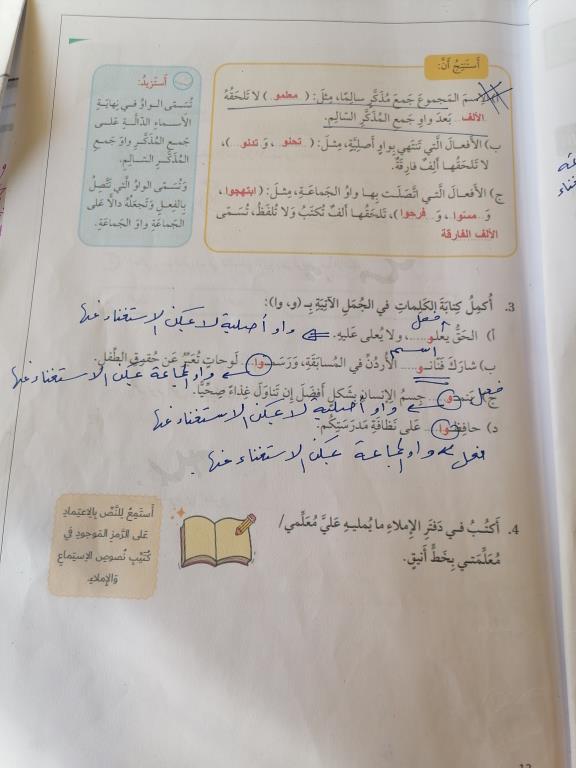 أَسْتَنْتِجُ أَنَّ:
الاسمَ المَجموعَ جَمعَ مُذَكَّرٍ سالِمًا، مِثلَ: ( معلمو ) لا تَلحَقُهُ
الألف.. بَعدَ واوِ جَمعِ المُذَكَّرِ السّالِمِ.
ب) الأَفعالَ الَّتي تَنتَهي بِواوٍ أَصلِيَّةٍ، مِثلَ: ( ..تحلو.. ، وَ ..تدنو.. )،
لا تَلحَقُها أَلِفٌ فارِقَةٌ.
ج) الأَفعالَ الَّتي اتَّصَلَت بِها واوُ الجَماعَةِ، مِثلَ: ( ابتهجوا ،
وَ.. مسّوا ، وَ.. فرحوا )، تَلحَقُها أَلفٌ تُكتَبُ وَلا تُلفَظُ، تُسَمّى
الألف الفارقة
أَسْتَزيدُ:
تُسَمّى الواوُ في نِهايَةِ
الأَسماءِ الدّالَّةِ عَلى
جَمعِ المُذَكَّرِ واوَ جَمعِ
المُذَكَّرِ السّالِمِ.
وَتُسَمّى الواوُ الَّتي تَتَّصِلُ
بِالفِعلِ وَتَجعَلُهُ دالًّا عَلى
الجَماعَةِ واوَ الجَماعَةِ.
3. أُكمِلُ كِتابَةَ الكَلِماتِ في الجُمَلِ الآتِيَةِ بِـ (و، وا):
فعل
أ) الحَقُّ يَعْلو.....، ولا يُعلى عَليهِ. واو أصلية لا يمكن الاستغناء عنها
اسم
ب) شارَكَ فَنّانـو.... الأُردُنِّ في المُسابَقَةِ، وَرَسَمـوا.. لَوحاتٍ تُعَبِّرُ عَن حُقوقِ الطِّفلِ.
واو الجماعة يمكن الاستغناء عنها
فعل
ج) يَنمـو.... جِسمُ الإِنسانِ بِشَكلٍ أَفضَلَ إِن تَناوَلَ غِذاءً صِحِّيًّا.
واو أصلية لا يمكن الاستغناء عنها
د) حافِظـوا.... عَلى نَظافَةِ مَدرَسَتِكُم.
فعل واو الجماعة يمكن الاستغناء عنها.
4. أَكتُبُ في دَفتَرِ الإِملاءِ ما يُمليهِ عَلَيَّ مُعَلِّمي/
مُعَلِّمَتي بِخَطٍّ أَنيقٍ.
أَستَمِعُ لِلنَّصِّ بِالاعتِمادِ
عَلى الرَّمزِ المَوجودِ في
كُتَيِّبِ نُصوصِ الاِستِماعِ
وَالإِملاءِ.